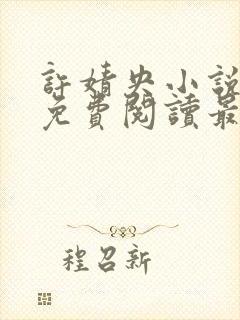 許婧央小說
免費閱讀最
程召新